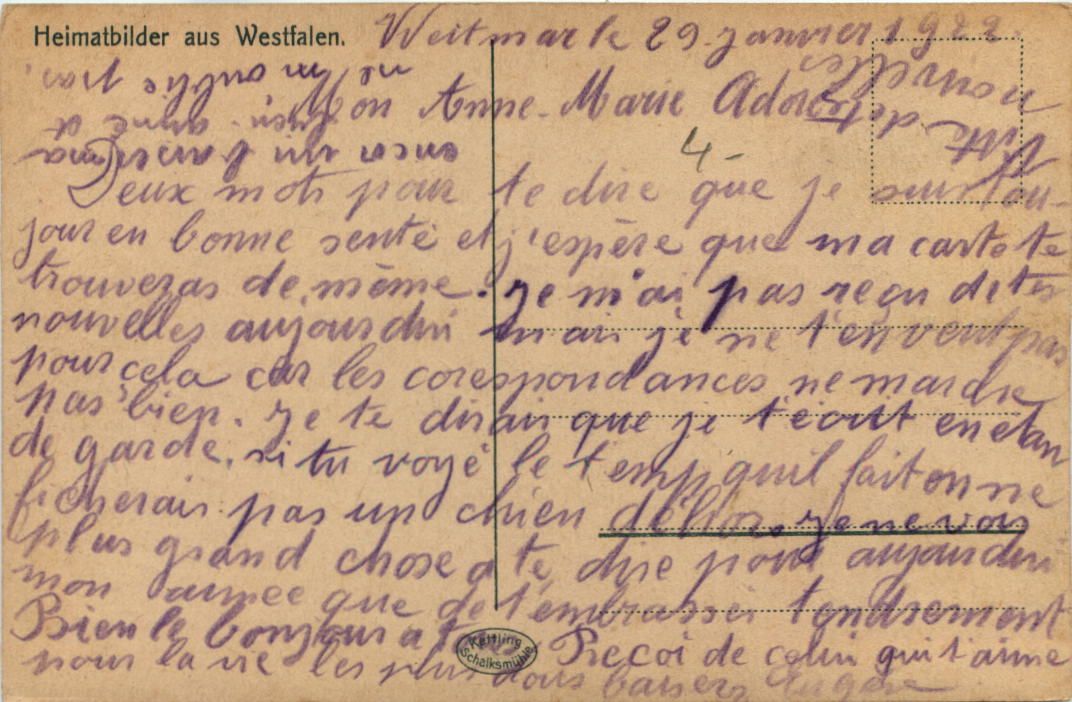 Heimatbilder aus Westfalen.
Weitmar le 29 janvier 1922.
Mon Anne-Marie Adorée
4-
Deux mots pour te dire que je suis tou-
jour en bonne senté et j'espère que ma carte te
trouveras de même. Je n'ai pas reçu de tes
nouvelles aujourdui mais je ne t'en veut pas
pour cela car les corespondances ne marche
pas bien. Je te dirais que je t'écrit en etan
de garde, si tu voyé le temp quil fait on ne
ficherais pas un chien déhor. Je ne vois
plus grand chose a te dire pour aujourdui
mon aimee que de t'embrasser tendrement
Bien le bonjour a
Reçoi de celui qui t'aime
pour la vie les plus doux baisers Eugène
Kettling
Schalksmühle
ancor un baiser ma
ne m'oublie pas.
Vitte de tes
nouvelles